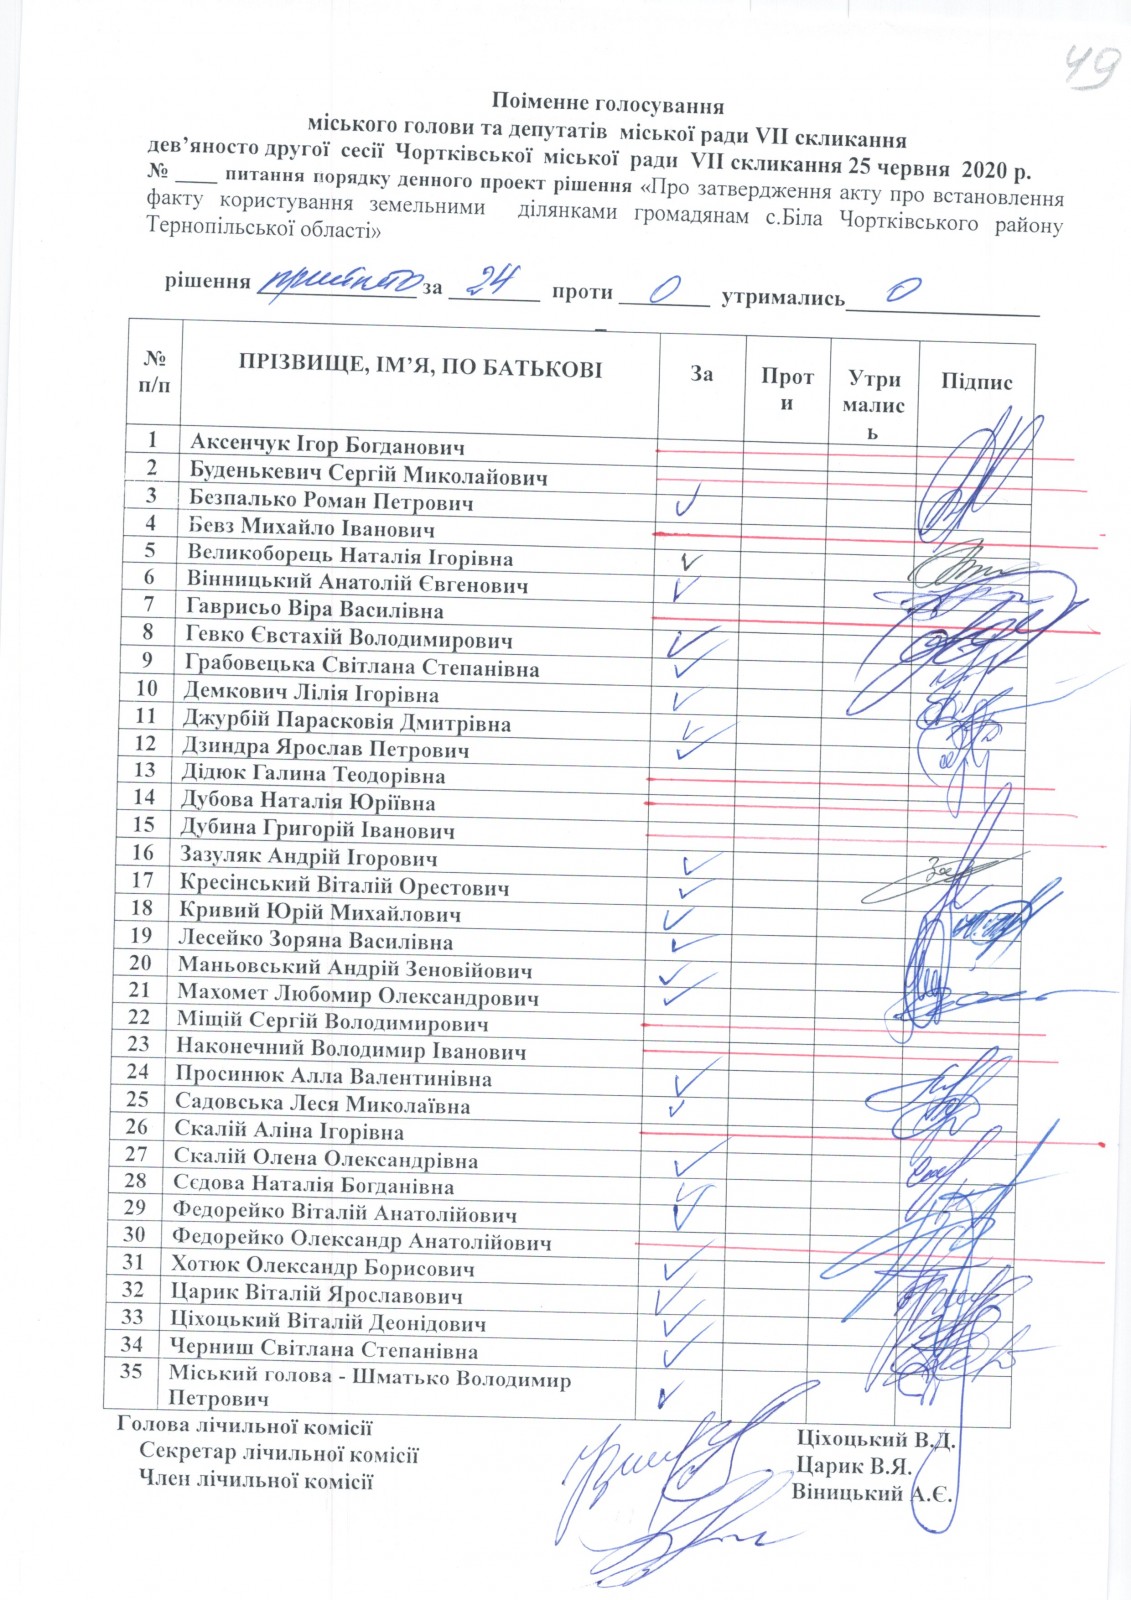 49
Поіменне голосування
міського голови та депутатів міської ради VII скликання
дев’яносто другої сесії Чортківської міської ради VII скликання 25 червня 2020 р.
№ ____ питання порядку денного проект рішення «Про затвердження акту про встановлення
факту користування земельними ділянками громадянам с.Біла Чортківського району
Тернопільської області»
рішення прийнято за 24 проти 0 утримались 0
№ п/п ПРІЗВИЩЕ, ІМ’Я, ПО БАТЬКОВІ За Проти Утрималисль Підпис
1 Аксенчук Ігор Богданович
2 Буденькевич Сергій Миколайович
3 Безпалько Роман Петрович ✓
4 Бевз Михайло Іванович
5 Великоборець Наталія Ігорівна ✓
6 Вінницький Анатолій Євгенович ✓
7 Гаврисьо Віра Василівна
8 Гевко Євстахій Володимирович ✓
9 Грабовецька Світлана Степанівна ✓
10 Демкович Лілія Ігорівна ✓
11 Джурбій Парасковія Дмитрівна ✓
12 Дзиндра Ярослав Петрович ✓
13 Дідюк Галина Теодорівна
14 Дубова Наталія Юріївна
15 Дубина Григорій Іванович
16 Зазуляк Андрій Ігорович ✓
17 Кресінський Віталій Орестович ✓
18 Кривий Юрій Михайлович ✓
19 Лесейко Зоряна Василівна ✓
20 Маньовський Андрій Зеновійович ✓
21 Махомет Любомир Олександрович ✓
22 Міщій Сергій Володимирович
23 Наконечний Володимир Іванович
24 Просинюк Алла Валентинівна ✓
25 Садовська Леся Миколаївна ✓
26 Скалій Аліна Ігорівна
27 Скалій Олена Олександрівна ✓
28 Сєдова Наталія Богданівна ✓
29 Федорейко Віталій Анатолійович ✓
30 Федорейко Олександр Анатолійович
31 Хотюк Олександр Борисович ✓
32 Царик Віталій Ярославович ✓
33 Ціхоцький Віталій Деонідович ✓
34 Черниш Світлана Степанівна ✓
35 Міський голова - Шматько Володимир
Петрович ✓
Голова лічильної комісії Ціхоцький В.Д.
Секретар лічильної комісії Царик В.Я.
Член лічильної комісії Віницький А.Є.